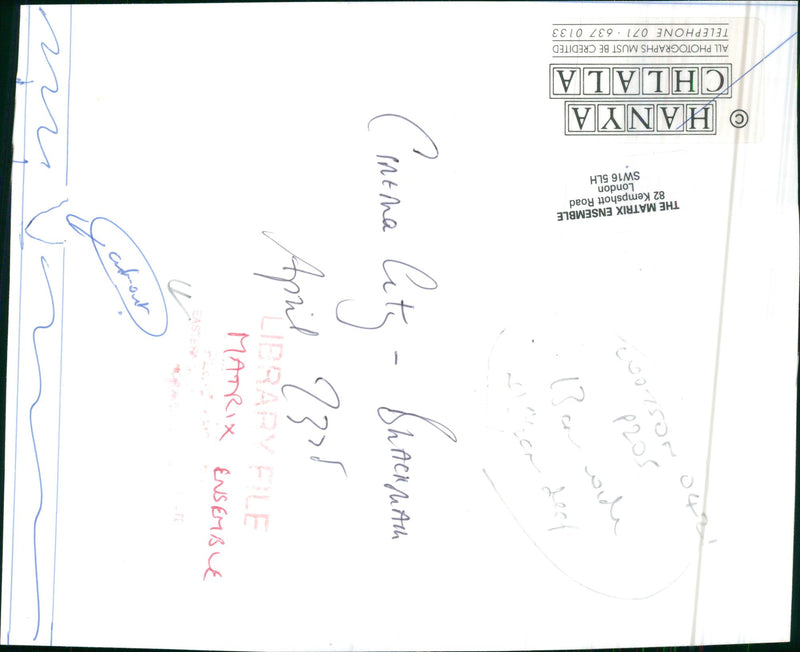 © HANYA
CHLALA
ALL PHOTOGRAPHS MUST BE CREDITED
TELEPHONE 071 · 637 0133
THE MATRIX ENSEMBLE
82 Kempshott Road
London
SW16 5LH
Cinema City - Blackmail
April 23rd
LIBRARY FILE
MATRIX ENSEMBLE
EASTERN
Cut-out
13 cm wide